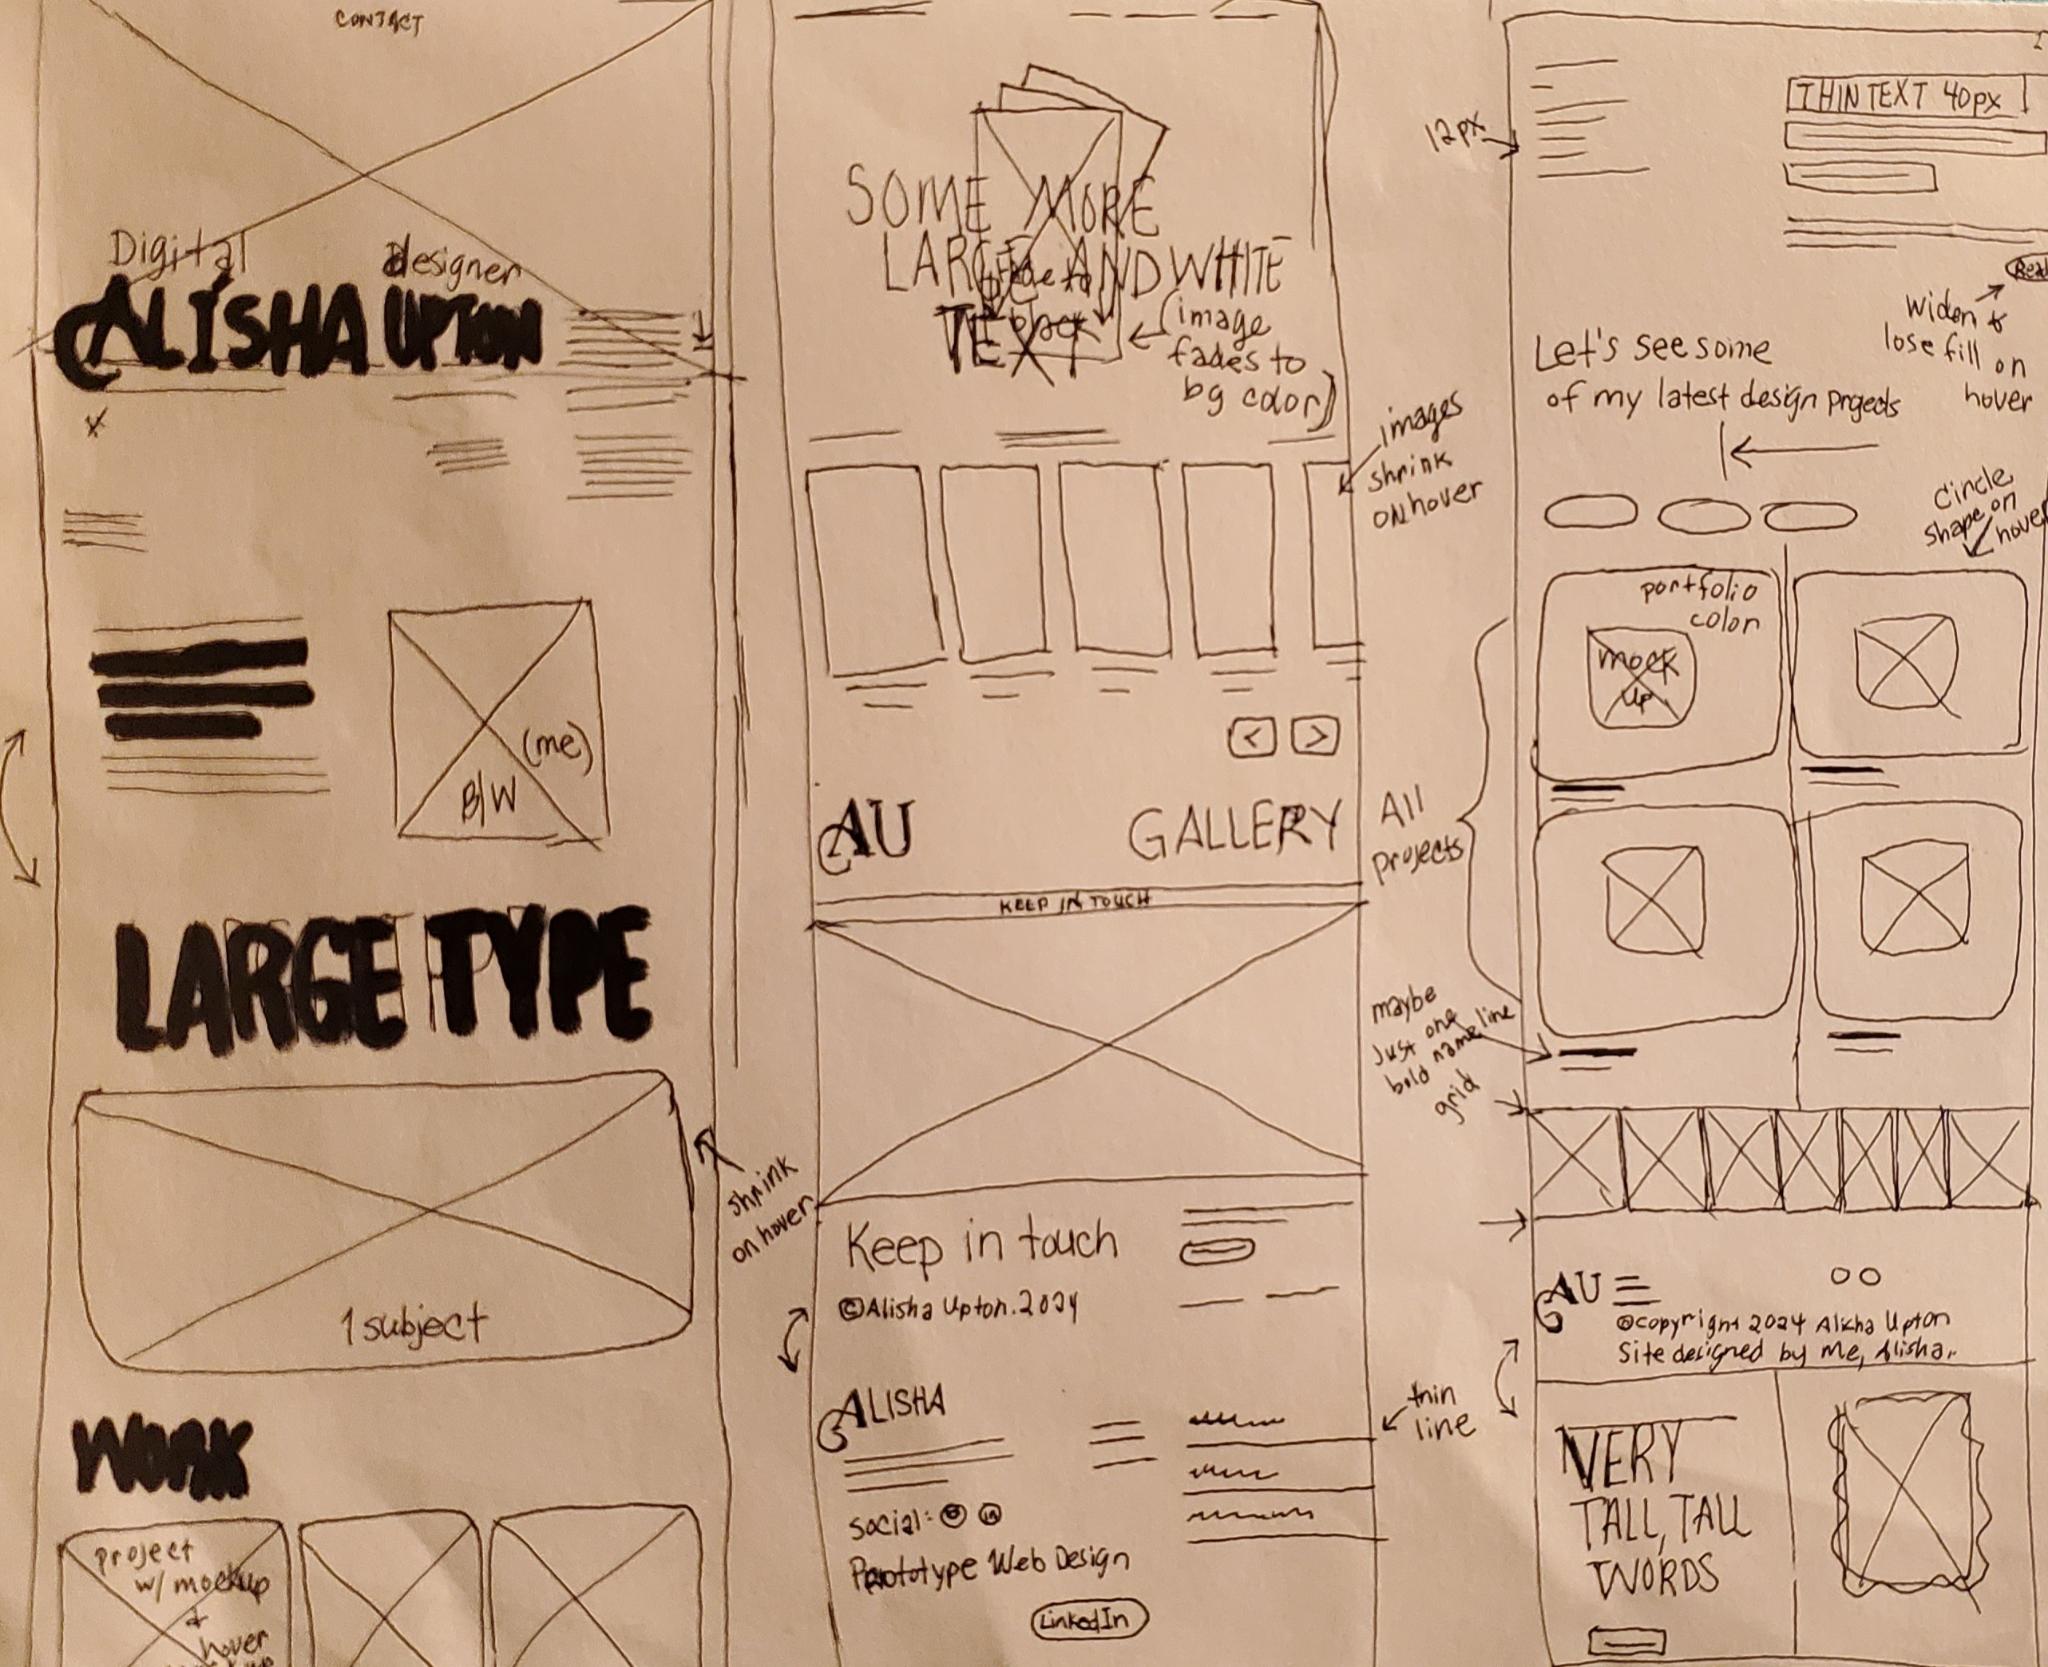 CONTACT
Digital designer
ALISHA UPTON
(me)
B/W
LARGE TYPE
1 subject
shrink
on hover
WORK
project
w/ mockup
&
hover
SOME MORE
LARGE AND WHITE
TEXT
fade to
black
(image
fades to
bg color)
images
shrink
on hover
< >
AU GALLERY
KEEP IN TOUCH
Keep in touch
©Alisha Upton.2024
ALISHA
thin
line
social: in
Prototype Web Design
LinkedIn
12px
THIN TEXT 40px
Read
widen &
lose fill on
hover
Let's see some
of my latest design projects
circle
shape on
hover
portfolio
color
mock
up
All
projects
maybe
just one
bold name line
grid
AU
©copyright 2024 Alisha Upton
Site designed by me, Alisha.
VERY
TALL, TALL
WORDS